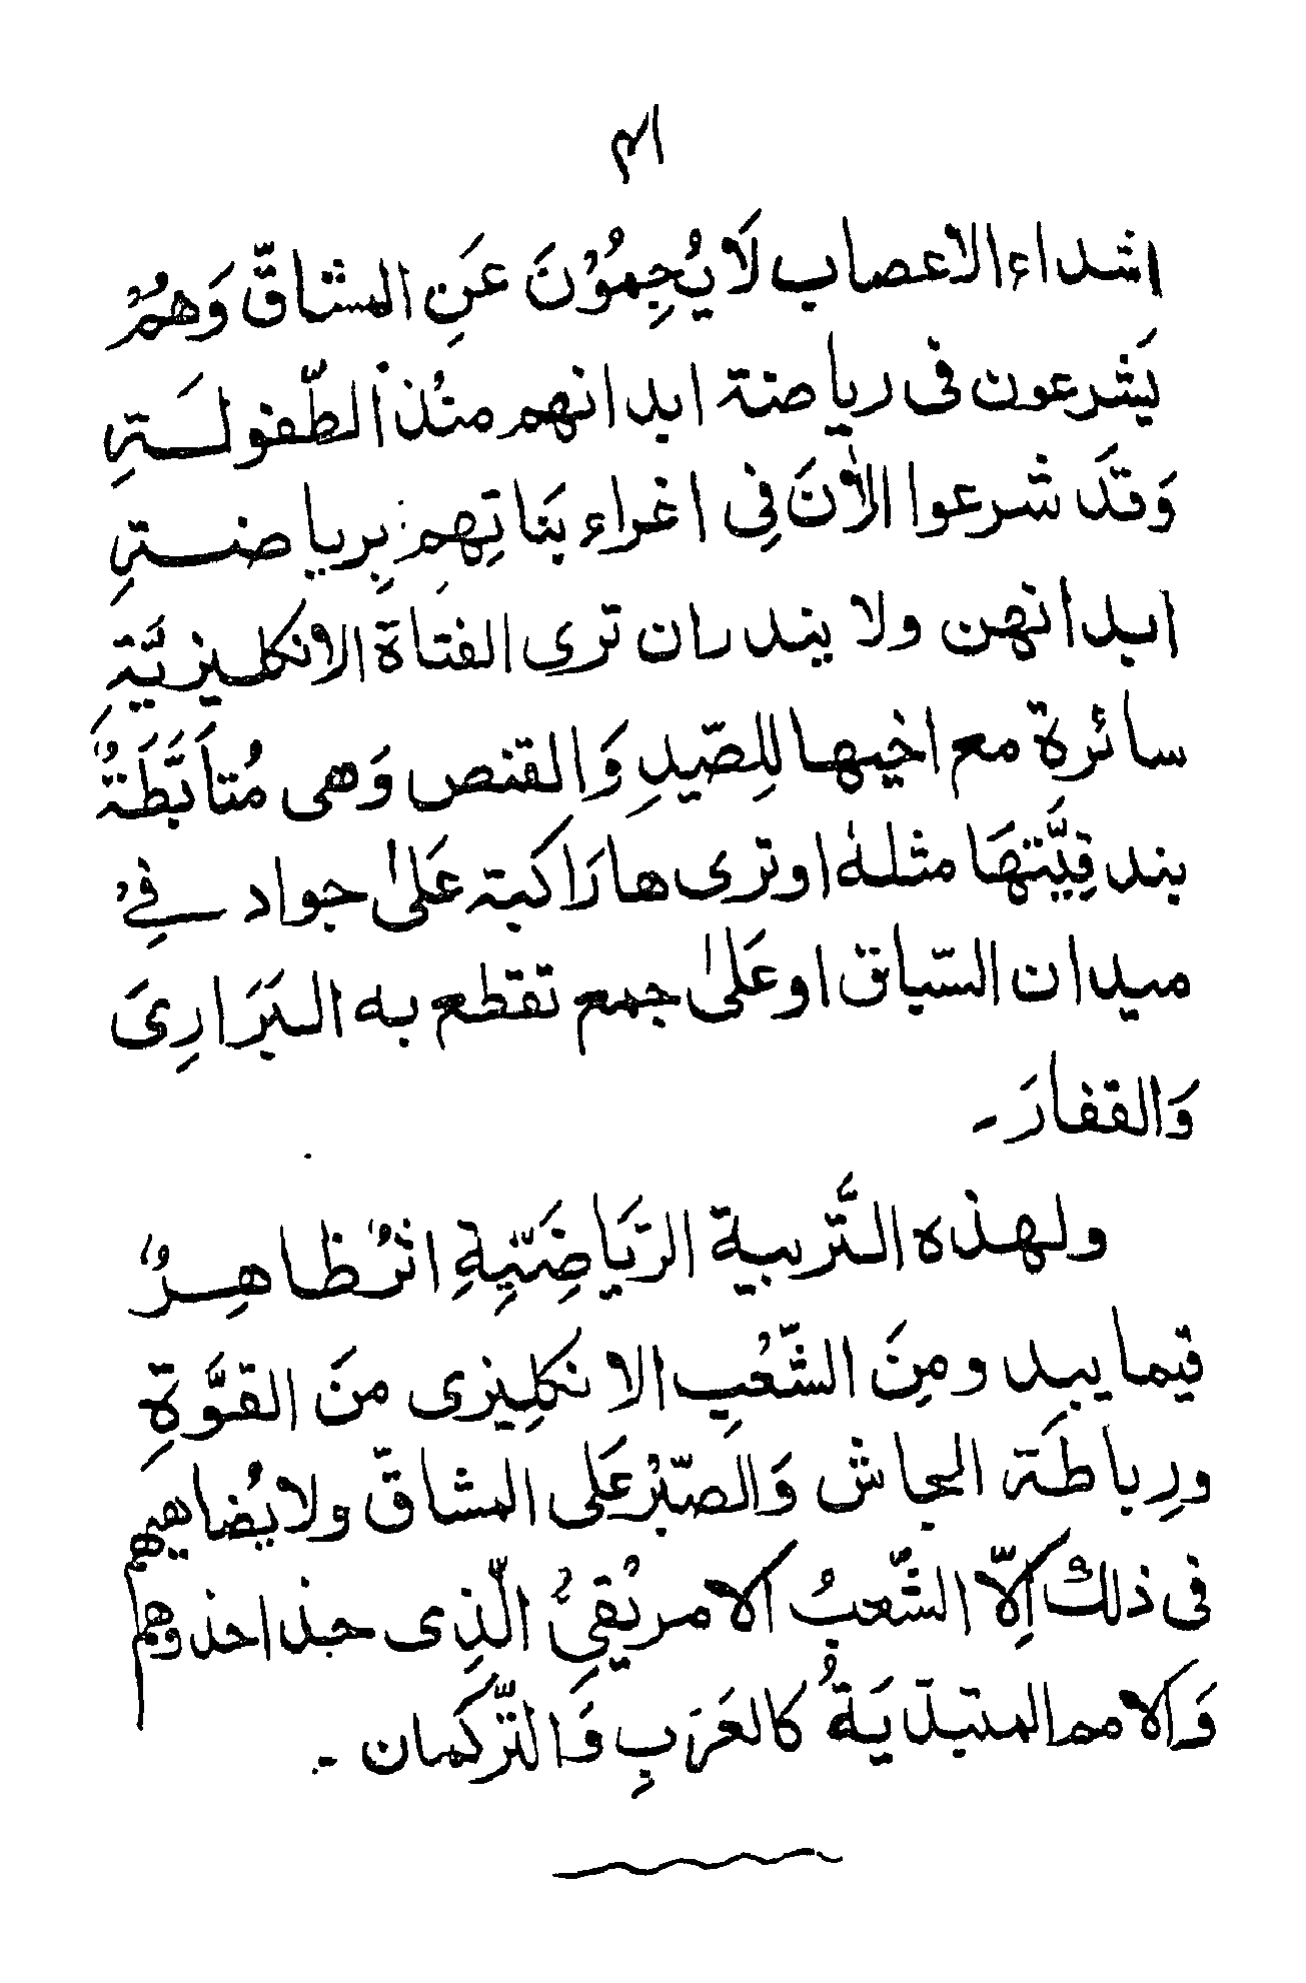 ٤١
اشداء الاعصاب لَا يُجِمُوْنَ عَنِ المشاقّ وَهُمْ
يَشرعون فى رياضة ابدانهم منُذ الطّفولةِ
وَقدَ شرعوا الاٰنَ فِى اغراء بنَاتِهِم بِرياضةِ
ابدانهن ولا يندران ترى الفتاة الانكليزيَّةِ
سائرة مع اخيها لِلصّيدِ وَالقنص وَهى مُتاَبَّطَةٌ
بندقِيَّتهَا مثلهٗ اوترى هارَاكبة عَلىٰ جواد فِے
ميدان السّباق اوعَلىٰ جمع تقطع به البَرَارِىَ
وَالقفارَ ـ
ولهذه التَّربية الرَّياضِيّةِ اثرٌ ظاهِرٌ
فيما يبد ومِنَ الشّعْبِ الانكلِيزى منَ القوَّةِ
ورِباطَة الجاش وَالصّبْرعَلى المشاقّ ولا يُضاهيهم
فى ذلك اِلّا الشّعبُ الامريْقِىُّ الّذِى حذاحذوهم
وَالامم المتبدّيَةُ كالعَرَبِ وَالتّركَمان ـ